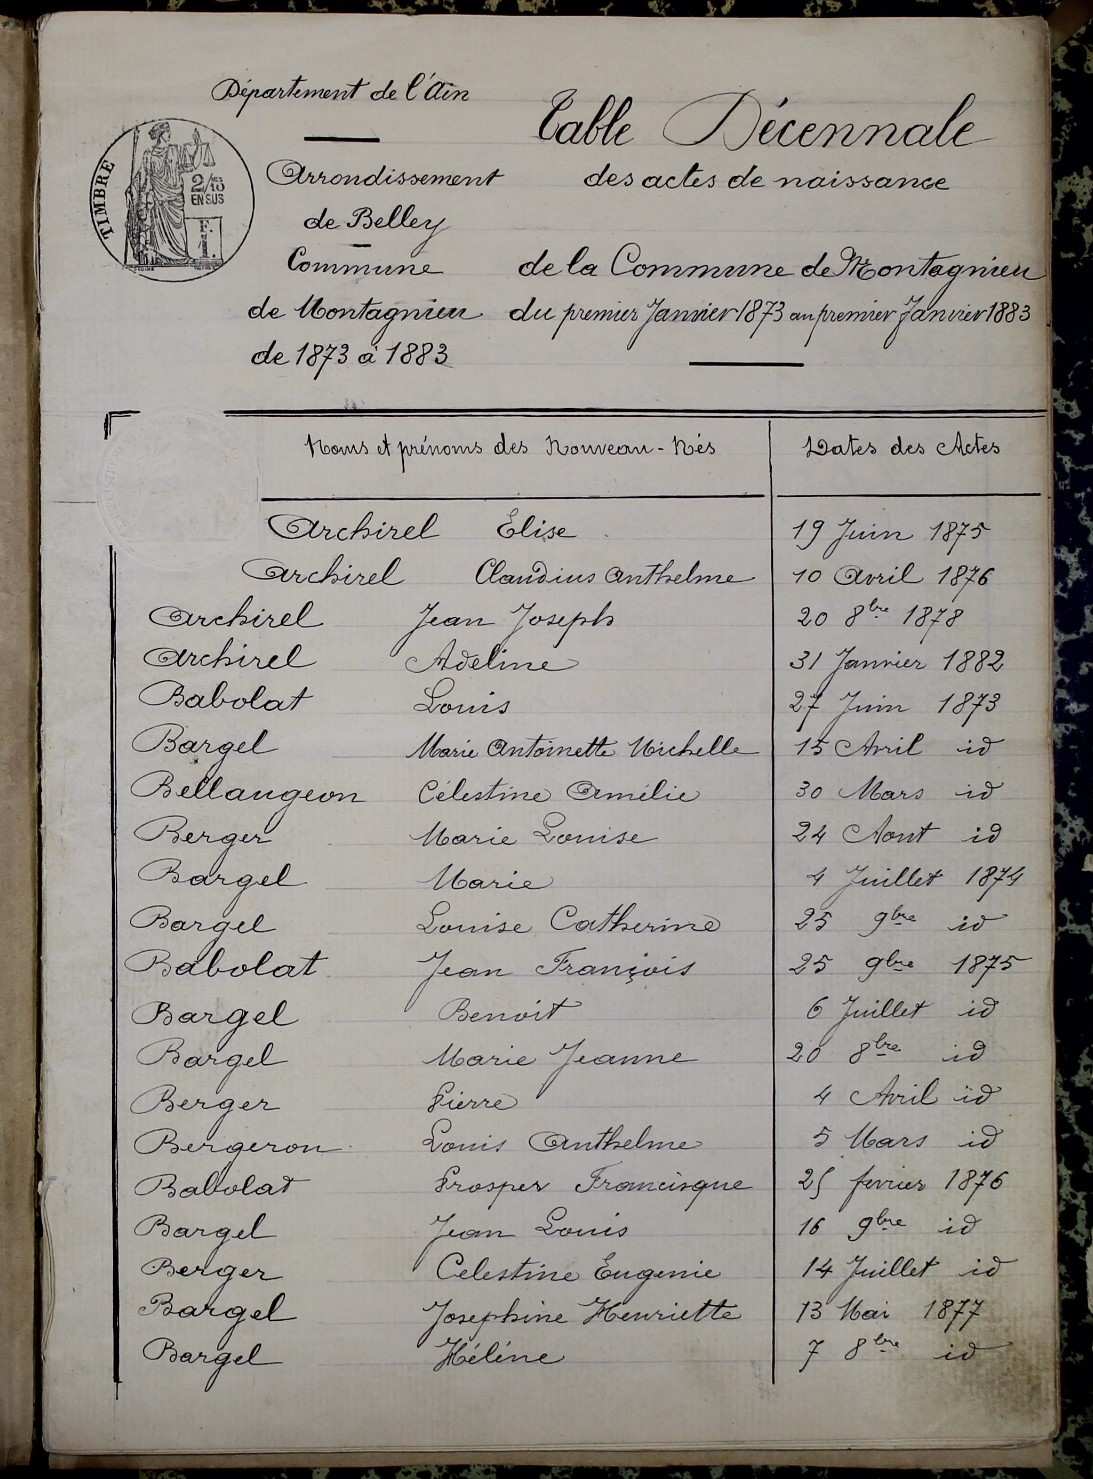 Département de l'Ain
Table Décennale
TIMBRE
2/10es
EN SUS
F.
1.
Arrondissement
des actes de naissance
de Belley
Commune
de la Commune de Montagnieu
de Montagnieu
du premier Janvier 1873 au premier Janvier 1883
de 1873 à 1883
Noms et prénoms des Nouveau-Nés Dates des Actes
Archirel Elise 19 Juin 1875
Archirel Claudius Anthelme 10 Avril 1876
Archirel Jean Joseph 20 8bre 1878
Archirel Adeline 31 Janvier 1882
Babolat Louis 27 Juin 1873
Bargel Marie Antoinette Michelle 15 Avril id
Bellaugeon Célestine Amélie 30 Mars id
Berger Marie Louise 24 Aout id
Bargel Marie 4 Juillet 1874
Bargel Louise Catherine 25 9bre id
Babolat Jean François 25 9bre 1875
Bargel Benoit 6 Juillet id
Bargel Marie Jeanne 20 8bre id
Berger Pierre 4 Avril id
Bergeron Louis Anthelme 5 Mars id
Babolat Prosper Francisque 25 fevrier 1876
Bargel Jean Louis 16 9bre id
Berger Celestine Eugenie 14 Juillet id
Bargel Josephine Henriette 13 Mai 1877
Bargel Héléne 7 8bre id